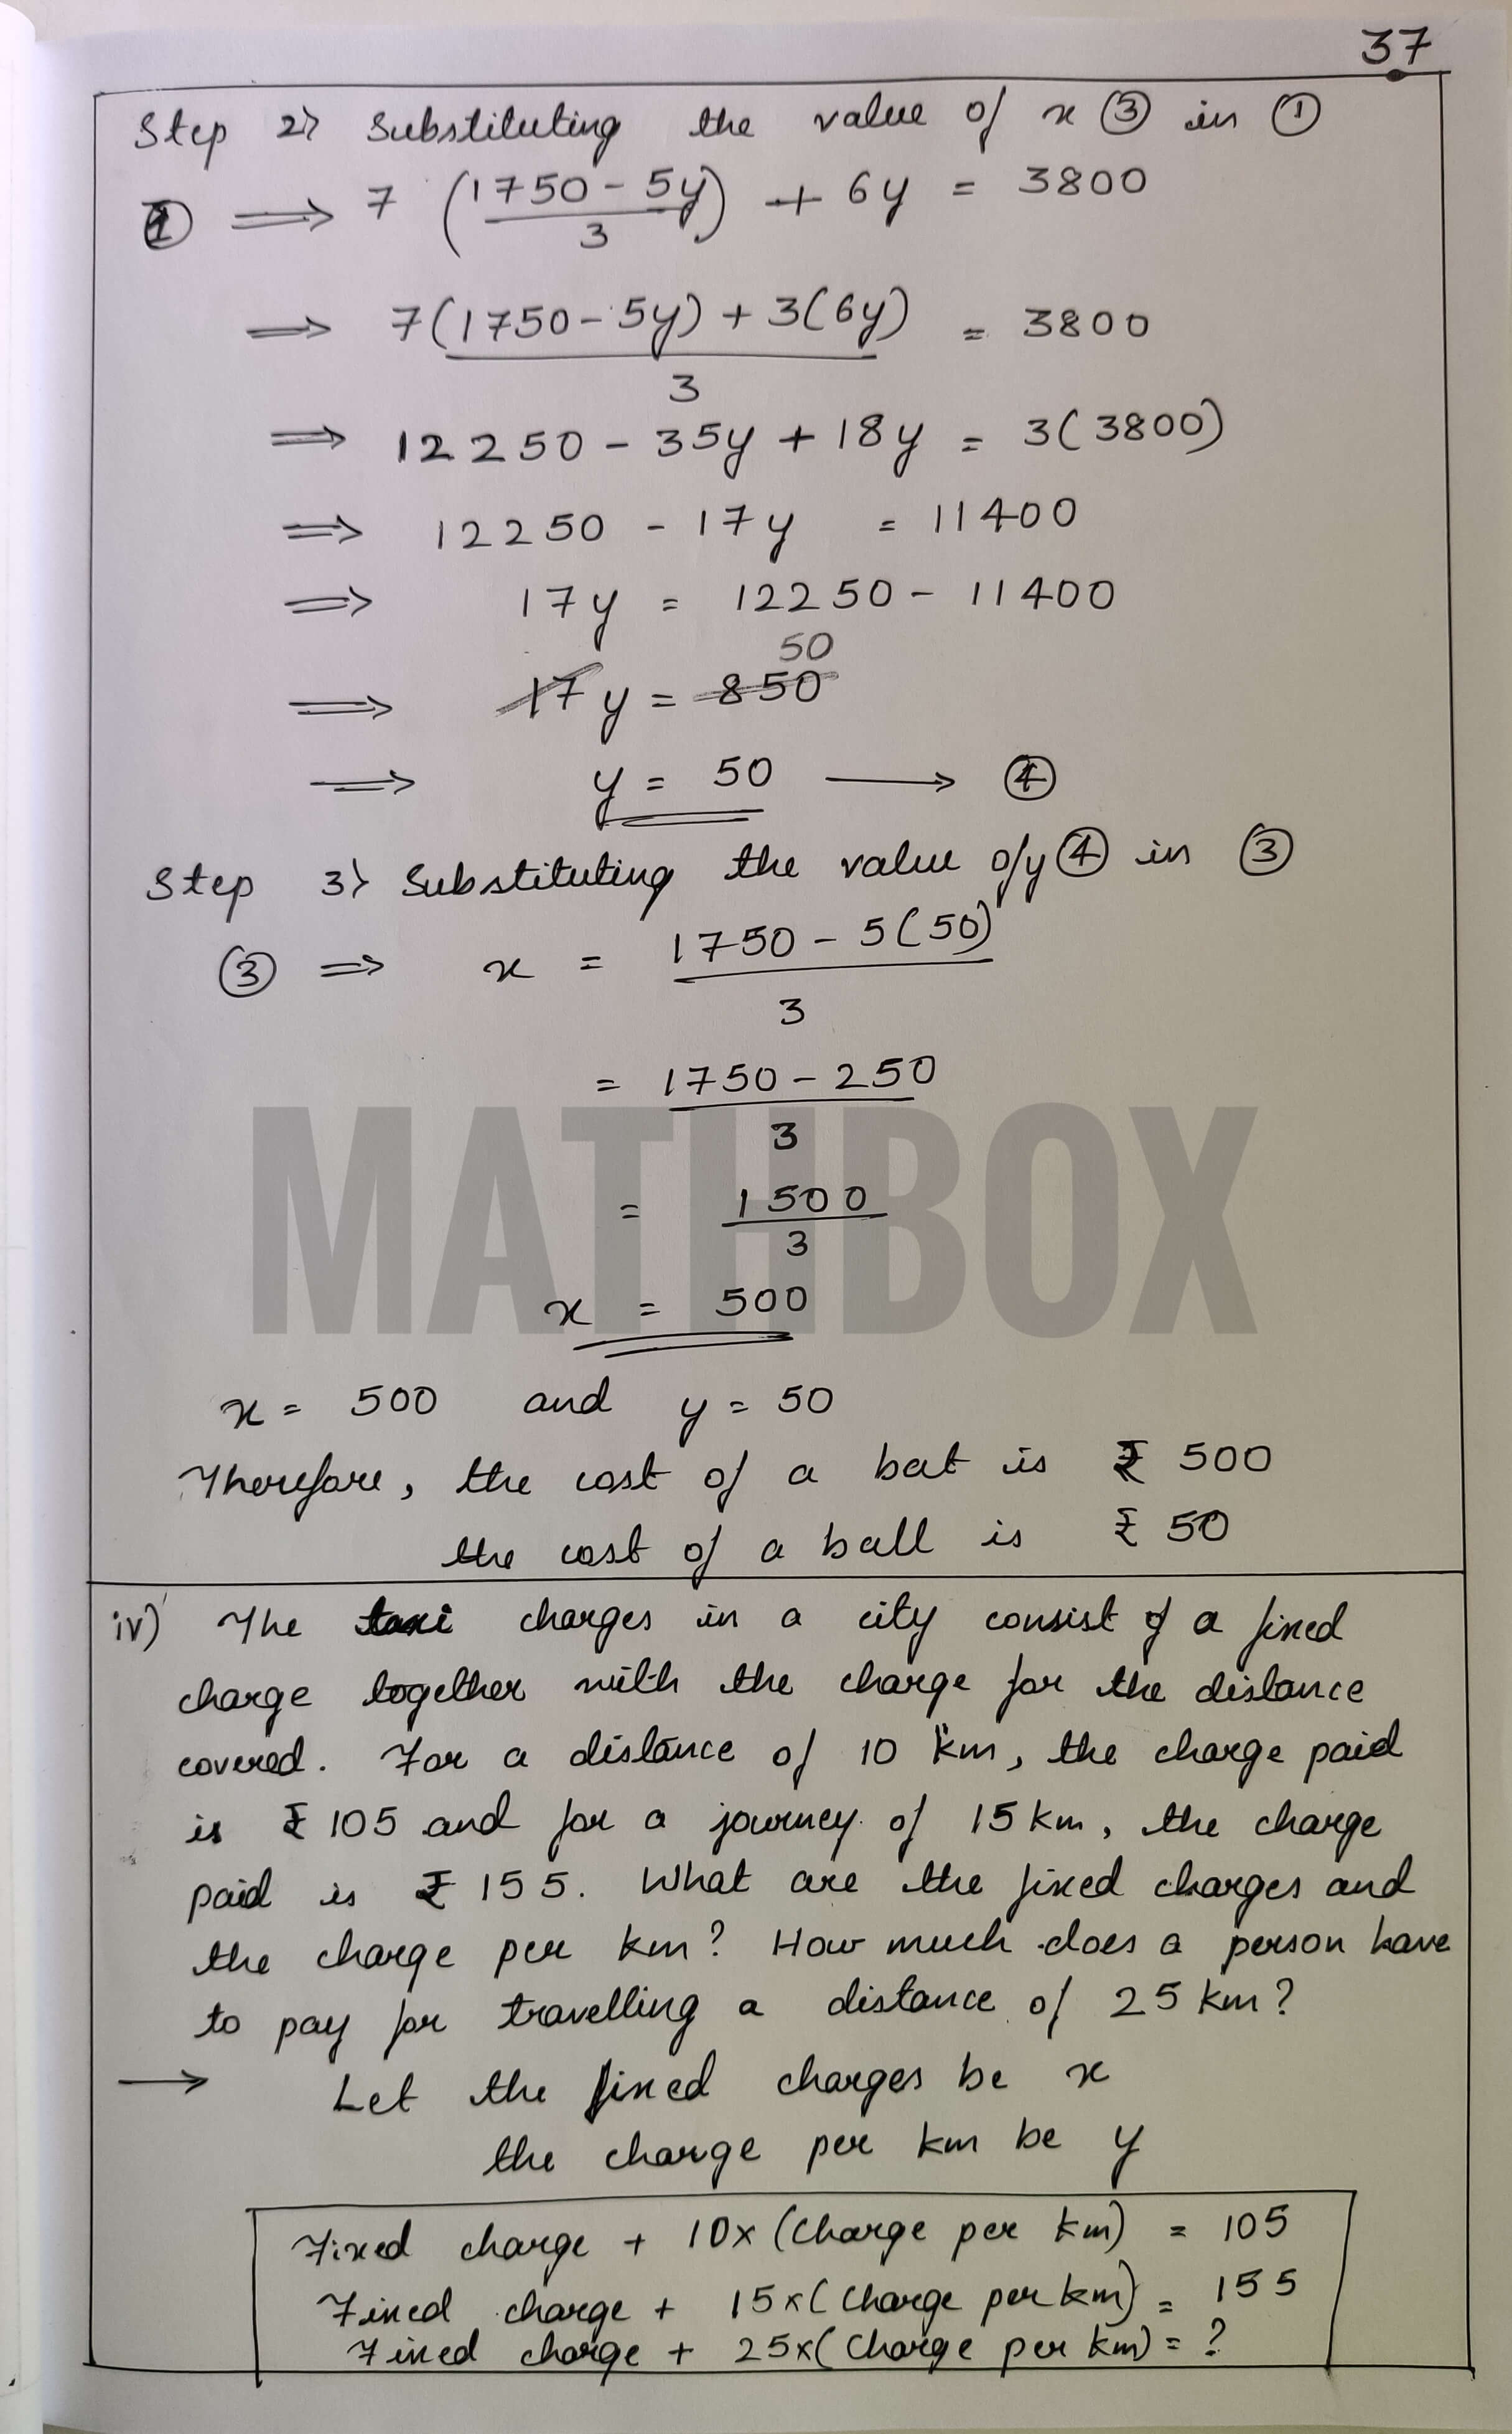 37
Step 2) Substituting the value of x ③ in ①
① ⟹ 7 (1750 - 5y / 3) + 6y = 3800
⟹ 7(1750 - 5y) + 3(6y) / 3 = 3800
⟹ 12250 - 35y + 18y = 3(3800)
⟹ 12250 - 17y = 11400
⟹ 17y = 12250 - 11400
50
⟹ 17y = 850
⟹ y = 50 ⟶ ④
Step 3) Substituting the value of y ④ in ③
③ ⟹ x = 1750 - 5(50) / 3
= 1750 - 250 / 3
= 1500 / 3
x = 500
MATHBOX
x = 500 and y = 50
Therefore, the cost of a bat is ₹ 500
the cost of a ball is ₹ 50
iv) The taxi charges in a city consist of a fixed
charge together with the charge for the distance
covered. For a distance of 10 km, the charge paid
is ₹ 105 and for a journey of 15 km, the charge
paid is ₹ 155. What are the fixed charges and
the charge per km? How much does a person have
to pay for travelling a distance of 25 km?
⟶ Let the fixed charges be x
the charge per km be y
Fixed charge + 10x (Charge per km) = 105
Fixed charge + 15x (Charge per km) = 155
Fixed charge + 25x (Charge per km) = ?